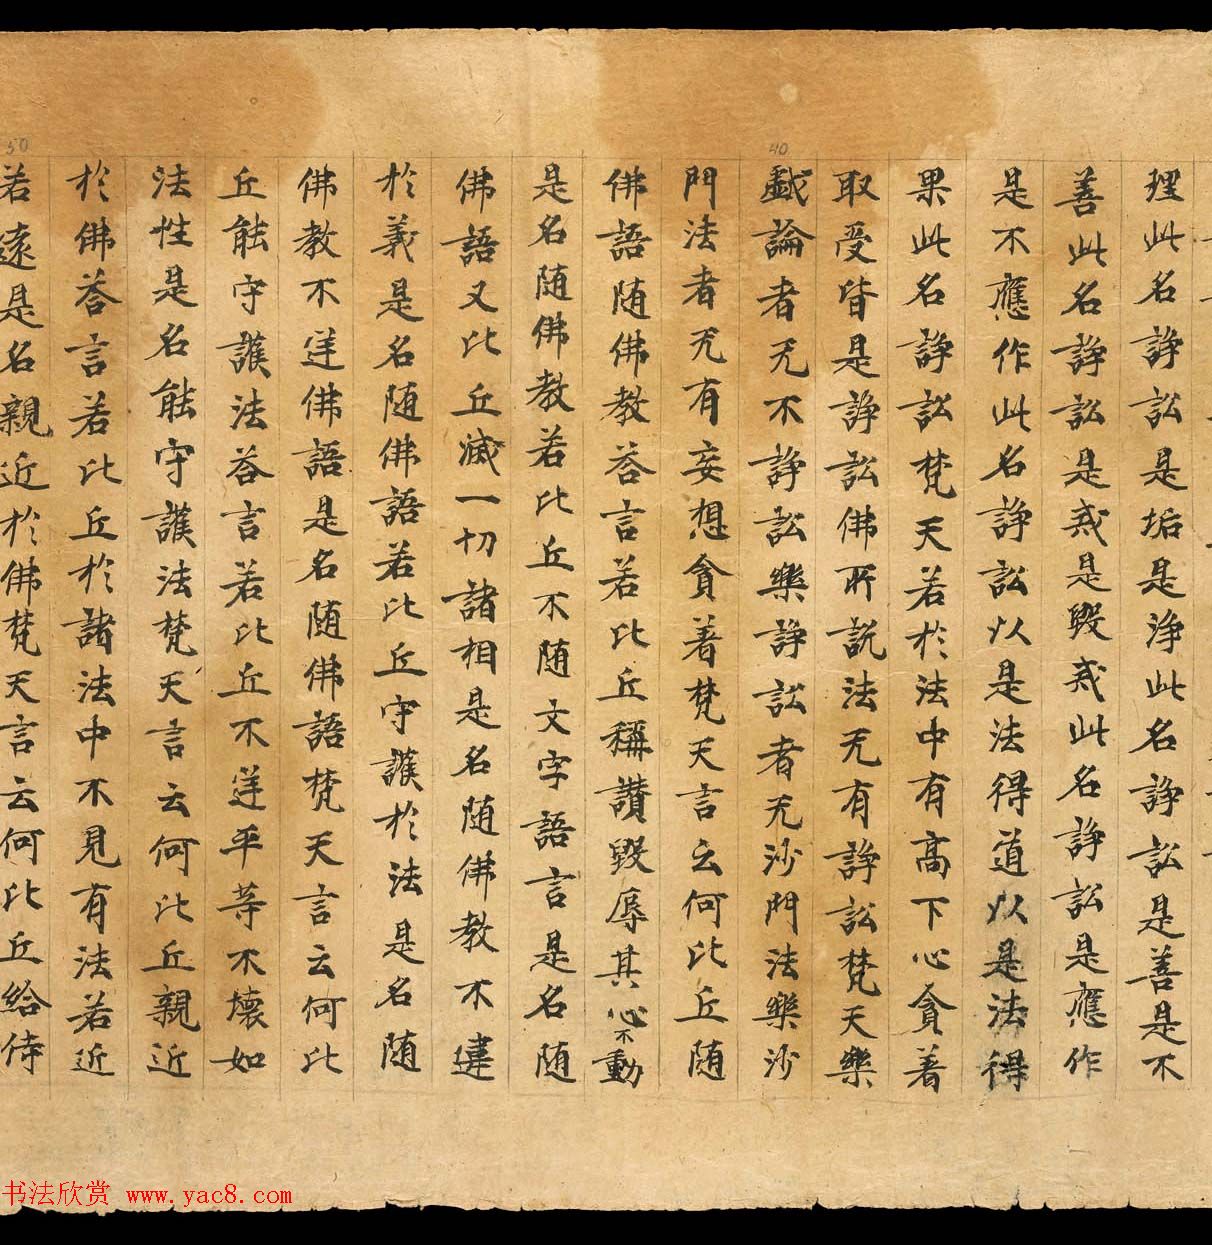 理此名諍訟是垢是淨此名諍訟是善是不
善此名諍訟是戒是毀戒此名諍訟是應作
是不應作此名諍訟以是法得道以是法得
果此名諍訟梵天若於法中有高下心貪著
取受皆是諍訟佛所說法无有諍訟梵天樂
戲論者无不諍訟樂諍訟者无沙門法樂沙
門法者无有妄想貪著梵天言云何比丘隨
佛語随佛教荅言若比丘稱讚毀辱其心不動
是名随佛教若比丘不随文字語言是名随
佛語又比丘滅一切諸相是名随佛教不違
於義是名随佛語若比丘守護於法是名随
佛教不逆佛語是名随佛語梵天言云何比
丘能守護法荅言若比丘不逆平等不壞如
法性是名能守護法梵天言云何比丘親近
於佛荅言若比丘於諸法中不見有法若近
若遠是名親近於佛梵天言云何比丘給侍
40
50
书法欣赏 www.yac8.com